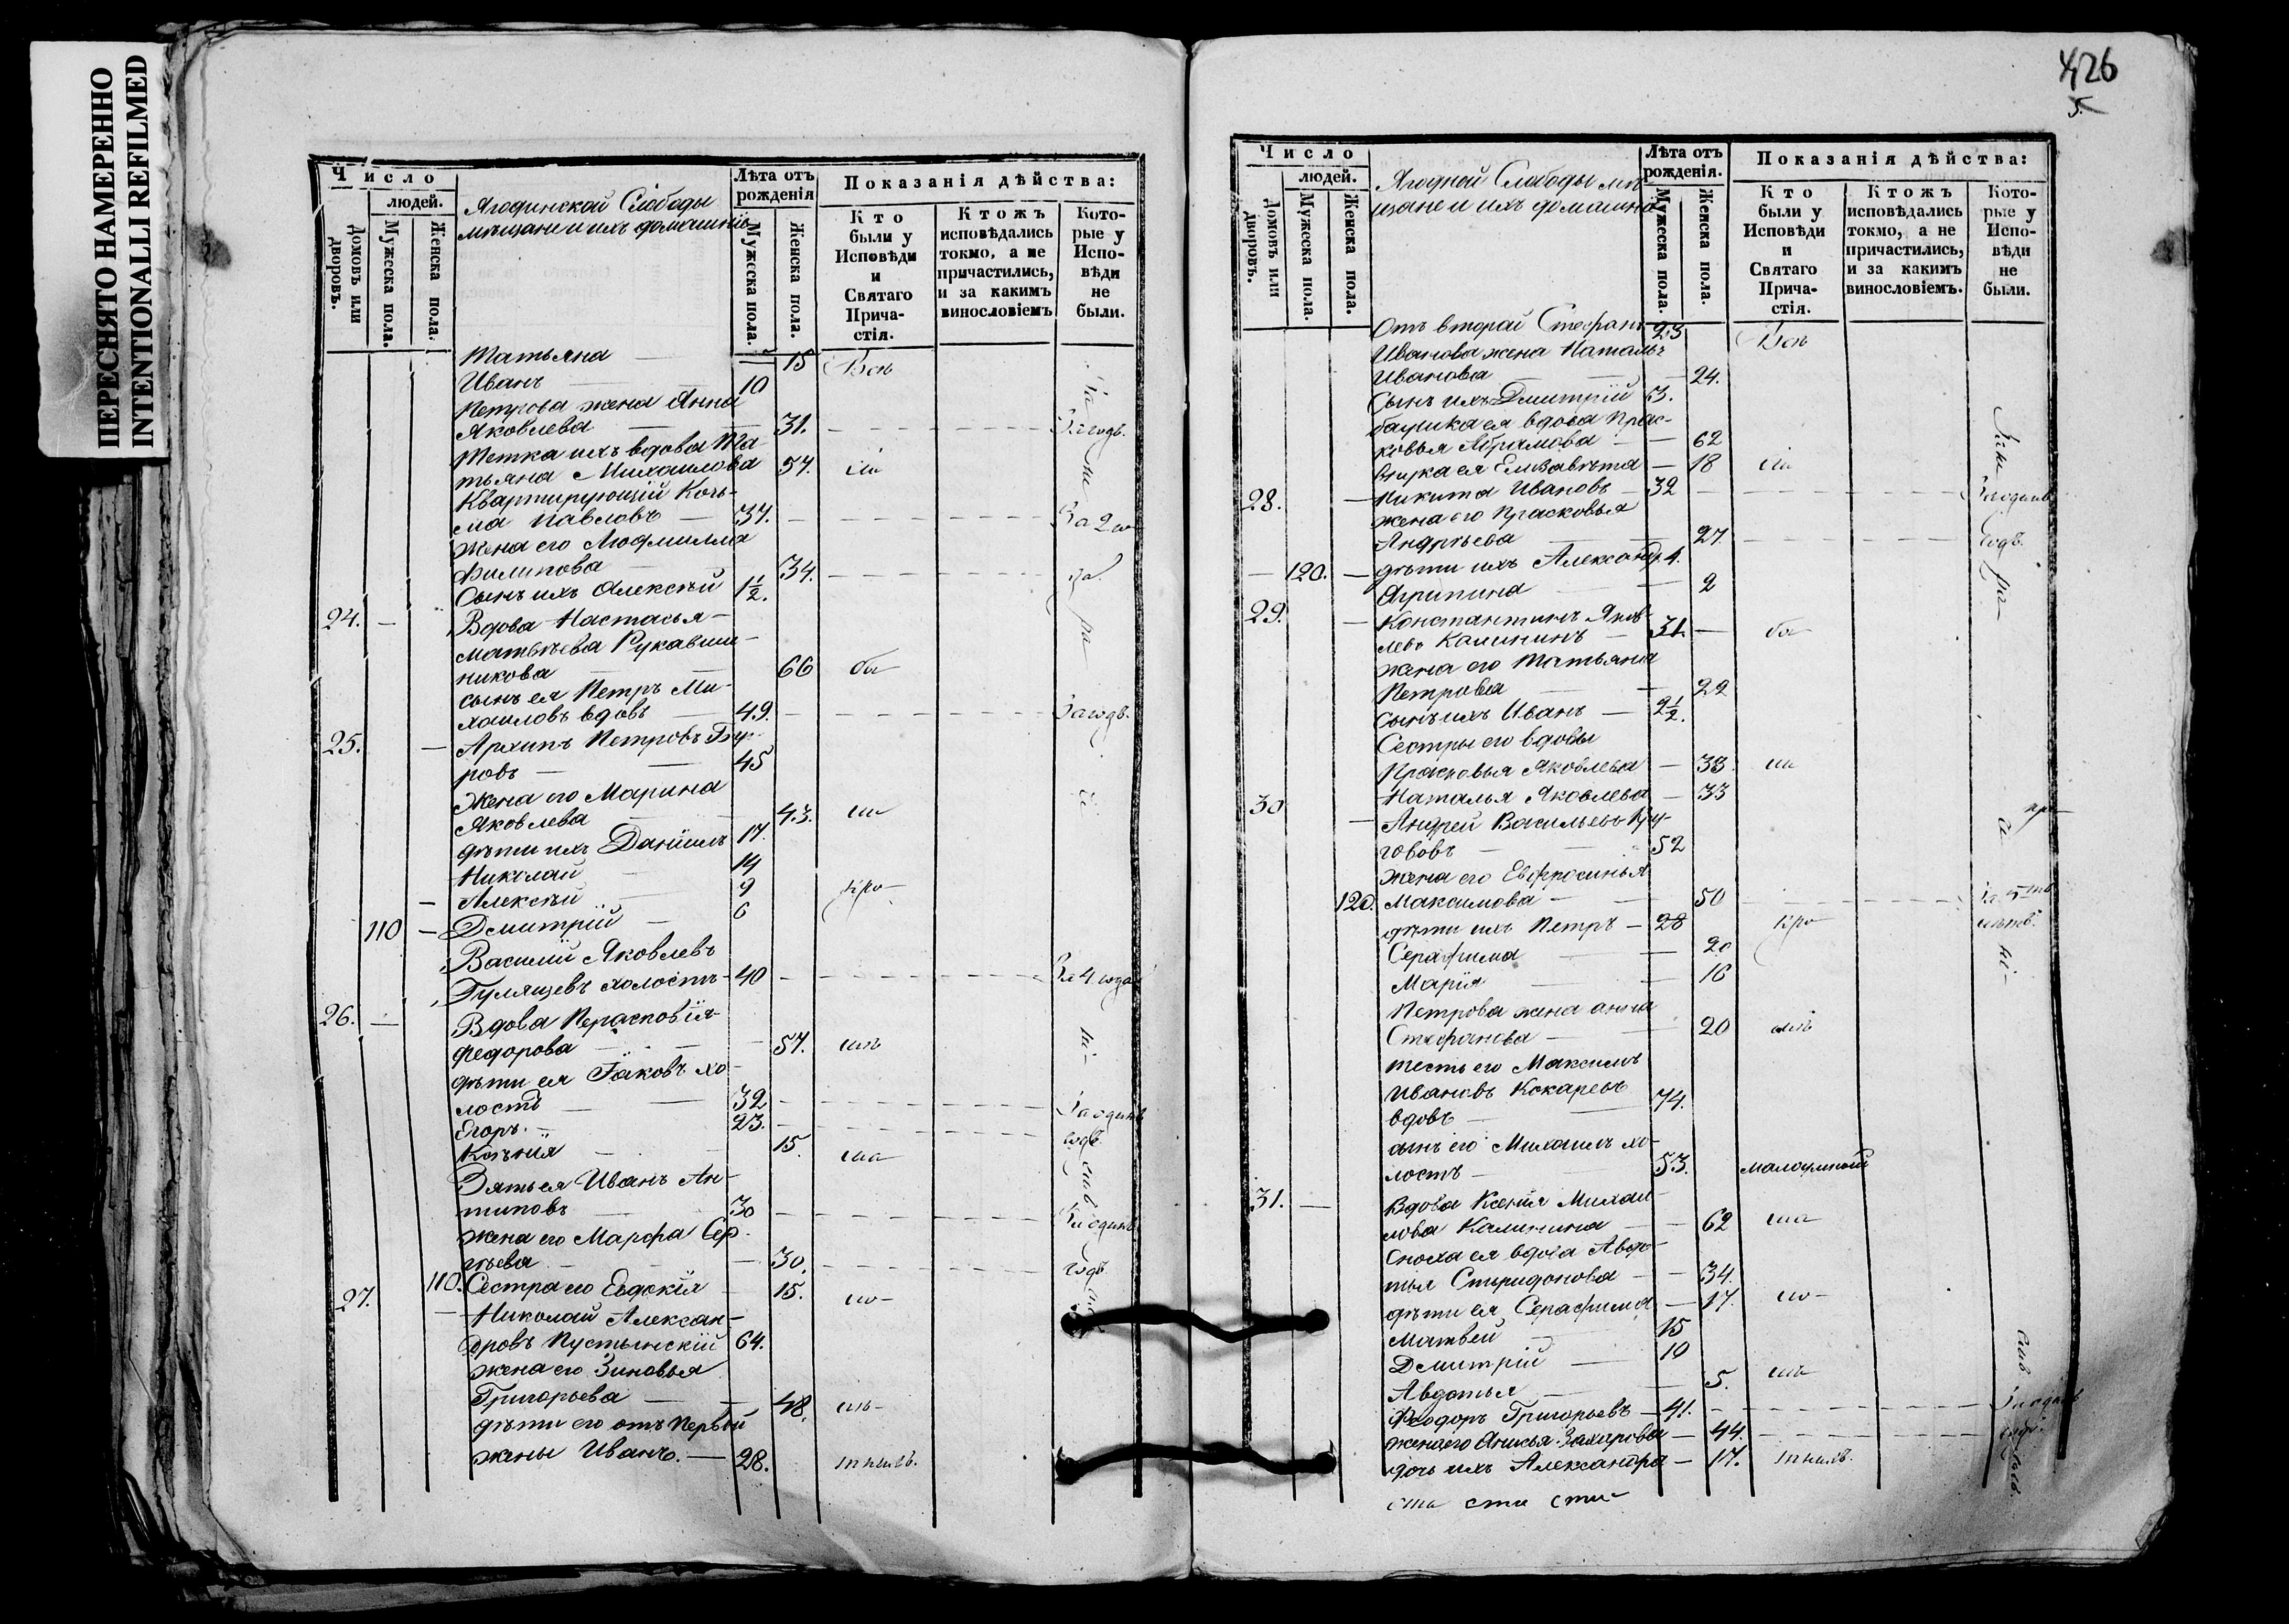 ПЕРЕСНЯТО НАМЕРЕННО
INTENTIONALLI REFILMED
Число
людей.
Домовъ или дворовъ.
Мужеска пола.
Женска пола.
Ягодинской Слободы
мѣщане и ихъ домашніе
Лѣта отъ рожденія
Мужеска пола.
Женска пола.
Показанія дѣйства:
Кто были у Исповѣди и Святаго Причастія.
Ктожъ исповѣдались токмо, а не причастились, и за какимъ винословіемъ
Которые у Исповѣди не были.
Татьяна — 15 Всѣ
Иванъ — 10
Петрова жена Анна
Яковлева — 31. За годъ.
Тетка ихъ вдова Та
тьяна Михаилова 54.
Квартирующій Козь-
ма Павловъ — 37. За 2 го
жена его Людмилла
Филипова — 34. да.
Сынъ ихъ Алексѣй 1 1/2.
24. — Вдова Настасья —
Матвѣева Рукавиш-
никова — 66 бы
сынъ ея Петръ Ми-
хаиловъ вдовъ — 49. За годъ.
25. — Архипъ Петровъ Бу-
ровъ — 45
Жена его Марина
Яковлева — 43. ли
дѣти ихъ Даніилъ 17.
Николай — 14
— Алексѣй — 9 кро-
110 — Дмитрій — 6
Василій Яковлевъ
Гулящевъ холостъ — 40 За 4 года
26. — Вдова Перасковія
Федорова — 57.
дѣти ея Іаковъ хо-
лостъ — 32 За одинъ
Егоръ — 23. годъ
Ксенія — 15.
Зять ея Иванъ Ан-
типовъ — 30 За одинъ
жена его Марфа Сер-
гѣева — 30. годъ
110. Сестра его Евдокія — 15. но-
27. — Николай Алексан-
дровъ Пустынскій 64.
жена его Зиновья
Григорьева — 48.
дѣти его отъ первой
жены Иванъ. — 28.
426
5.
Число
людей.
Домовъ или дворовъ.
Мужеска пола.
Женска пола.
Ягодной Слободы мѣ
щане и ихъ домашніе
Лѣта отъ рожденія.
Мужеска пола.
Женска пола.
Показанія дѣйства:
Кто были у Исповѣди и Святаго Причастія.
Ктожъ исповѣдались токмо, а не причастились, и за какимъ винословіемъ.
Которые у Исповѣди не были.
Отъ второй Стефанъ 23 Всѣ
Иванова жена Наталья
Иванова — 24.
Сынъ ихъ Дмитрій 3.
бабушка ея вдова Прас-
ковья Абрамова — 62
внучка ея Елизавета — 18
28. — Никита Ивановъ — 32 За одинъ
жена его Прасковья
Андрѣева — 27 годъ.
— 120. — дѣти ихъ Александръ 4.
Агрипина — 2
29. — Константинъ Яков-
левъ Калининъ — 31 — бы
жена его Татьяна
Петрова — 29
сынъ ихъ Иванъ — 2 1/2.
Сестры его вдовы
Прасковья Яковлева — 38
Наталья Яковлева — 33
30 — Андрей Васильевъ
52
жена его Евфросинья
120. Максимова — 50 За 5ть
дѣти ихъ Петръ — 28 кро- лѣтъ.
Серафима — 20
Марія — 16
Петрова жена Анна
Стефанова — 20
тесть его Максимъ
Ивановъ Кокаревъ
вдовъ — 74.
сынъ его Михаилъ хо-
лостъ — 53. малоумный
31. — Вдова Ксенія Михаи-
лова Калинина — 62
Сноха ея вдова Авдо-
тья Спиридонова — 34.
дѣти ея Серафима — 17. но-
Матвей — 15
Дмитрій — 10
Авдотья — 5.
Феодоръ Григорьевъ — 41. За одинъ
жена его Анисья Захарова — 44. годъ.
дочь ихъ Александра — 17.